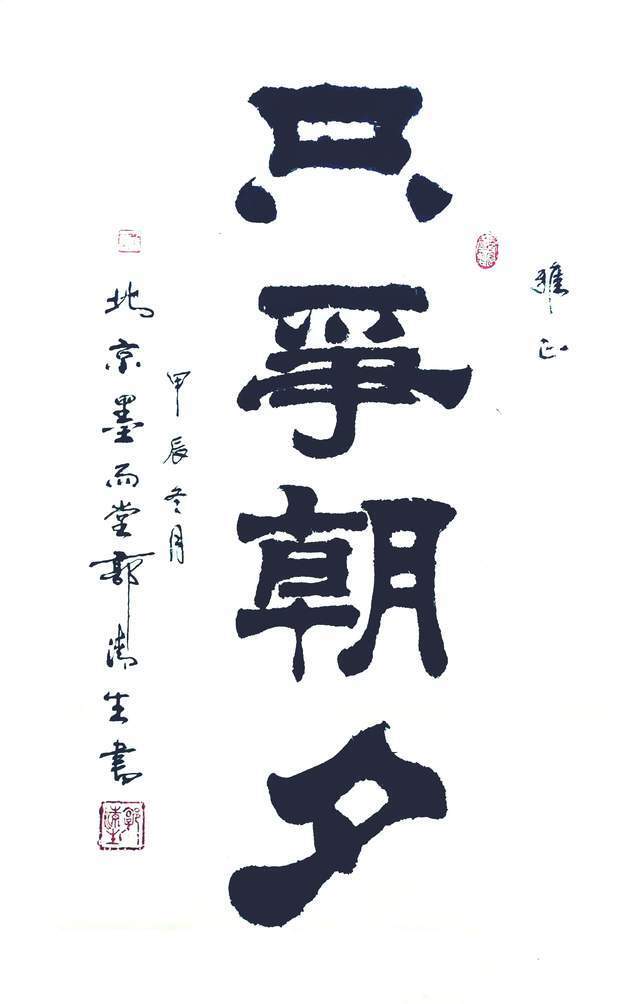 雅正
只爭朝夕
甲辰冬月
北京墨而堂郭生書